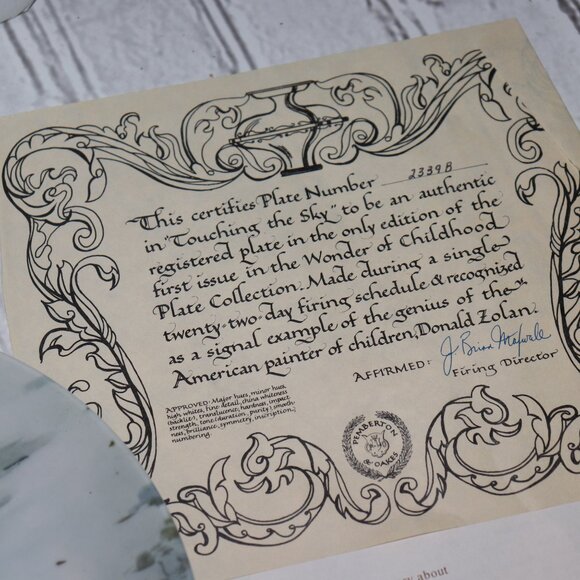 This certifies Plate Number 2339B
in "Touching the Sky" to be an authentic
registered plate in the only edition of the
first issue in the Wonder of Childhood
Plate Collection. Made during a single
twenty-two day firing schedule & recognized
as a signal example of the genius of the
American painter of children, Donald Zolan.
AFFIRMED: J. Brian Maxwell
Firing Director
APPROVED: Major hues, minor hues,
high whites, fine detail, china whiteness
(backlit), translucence, hardness, impact
strength, tone (duration, purity) smooth-
ness, brilliance, symmetry, inscription,
numbering.
PEMBERTON
& OAKES
about